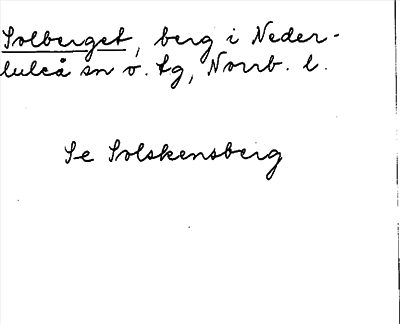 Solberget, berg i Neder-
luleå sn o. tg, Norrb. l.
Se Solskensberg